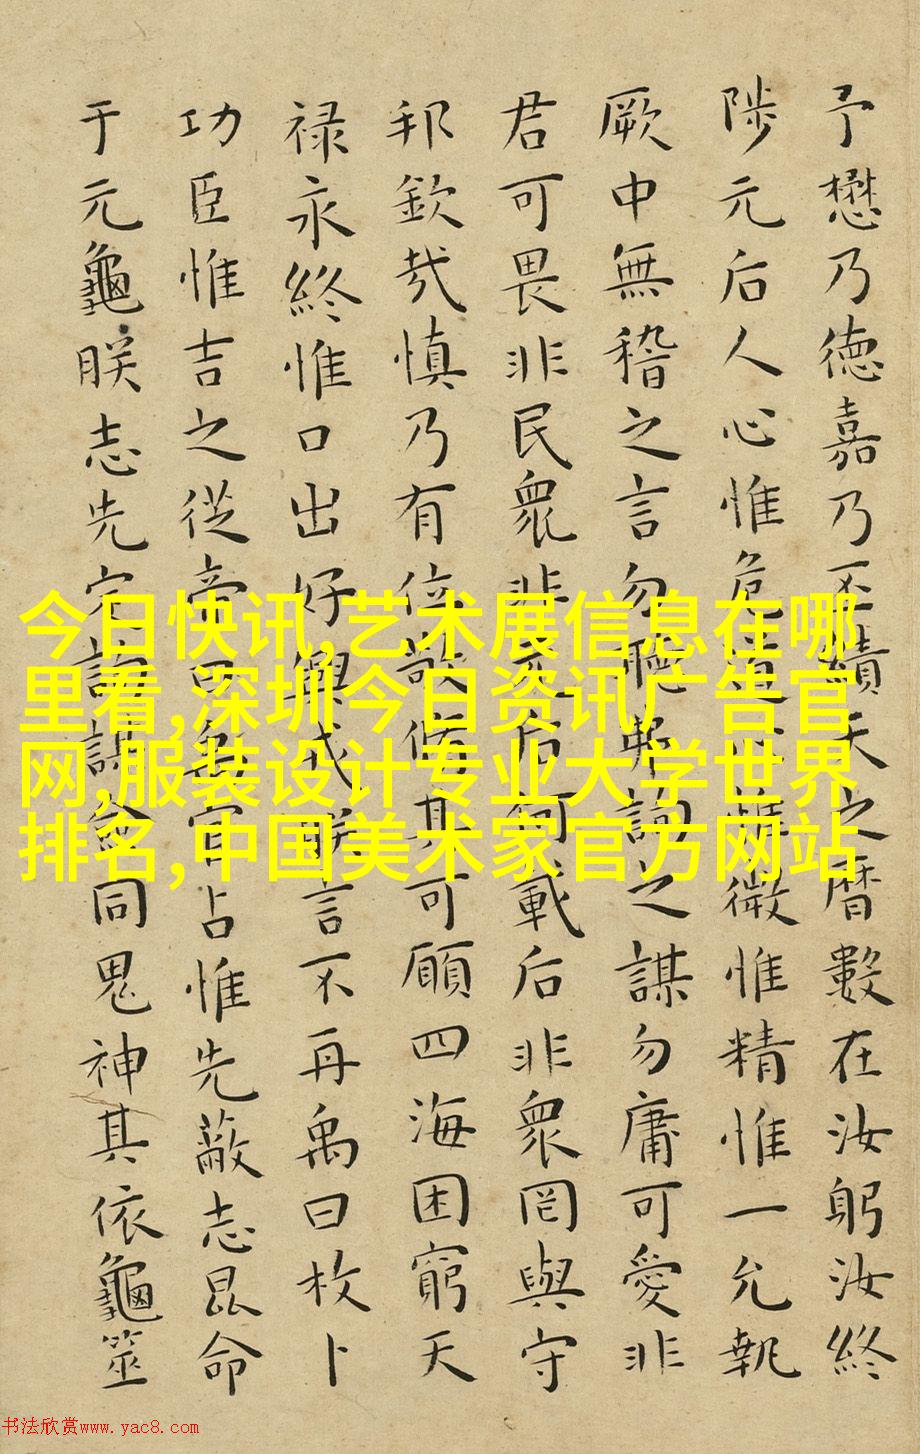 予懋乃德嘉乃丕績天之暦數在汝躬汝終
陟元后人心惟危道心惟微惟精惟一允執
厥中無稽之言勿聽弗詢之謀勿庸可愛非
君可畏非民衆非元后何載后非衆罔與守
邦欽哉慎乃有位敬脩其可願四海困窮天
禄永終惟口出好興戎朕言不再禹曰枚卜
功臣惟吉之從帝曰禹官占惟先蔽志昆命
于元龜朕志先定詢謀僉同鬼神其依龜筮
今日快讯,艺术展信息在哪
里看,深圳今日资讯广告官
网,服装设计专业大学世界
排名,中国美术家官方网站
书法欣赏www.yac8.com